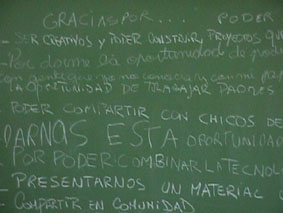 GRACIAS POR... PODER
- SER CREATIVOS y PODER CONSTRUIR PROYECTOS QUE
- Por darme la oportunidad de
con gente que no conocia y
LA OPORTUNIDAD DE TRABAJAR PADRES
PODER COMPARTIR CON CHICOS DE
DARNOS ESTA OPORTUNIDAD
- POR PODER COMBINAR LA TECNOL
- PRESENTARNOS UN MATERIAL
- COMPARTIR EN COMUNIDAD